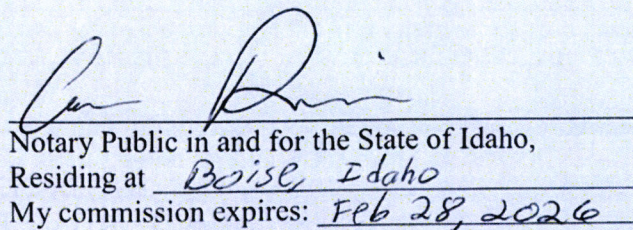 Notary Public in and for the State of Idaho,
Residing at Boise, Idaho
My commission expires: Feb 28, 2026